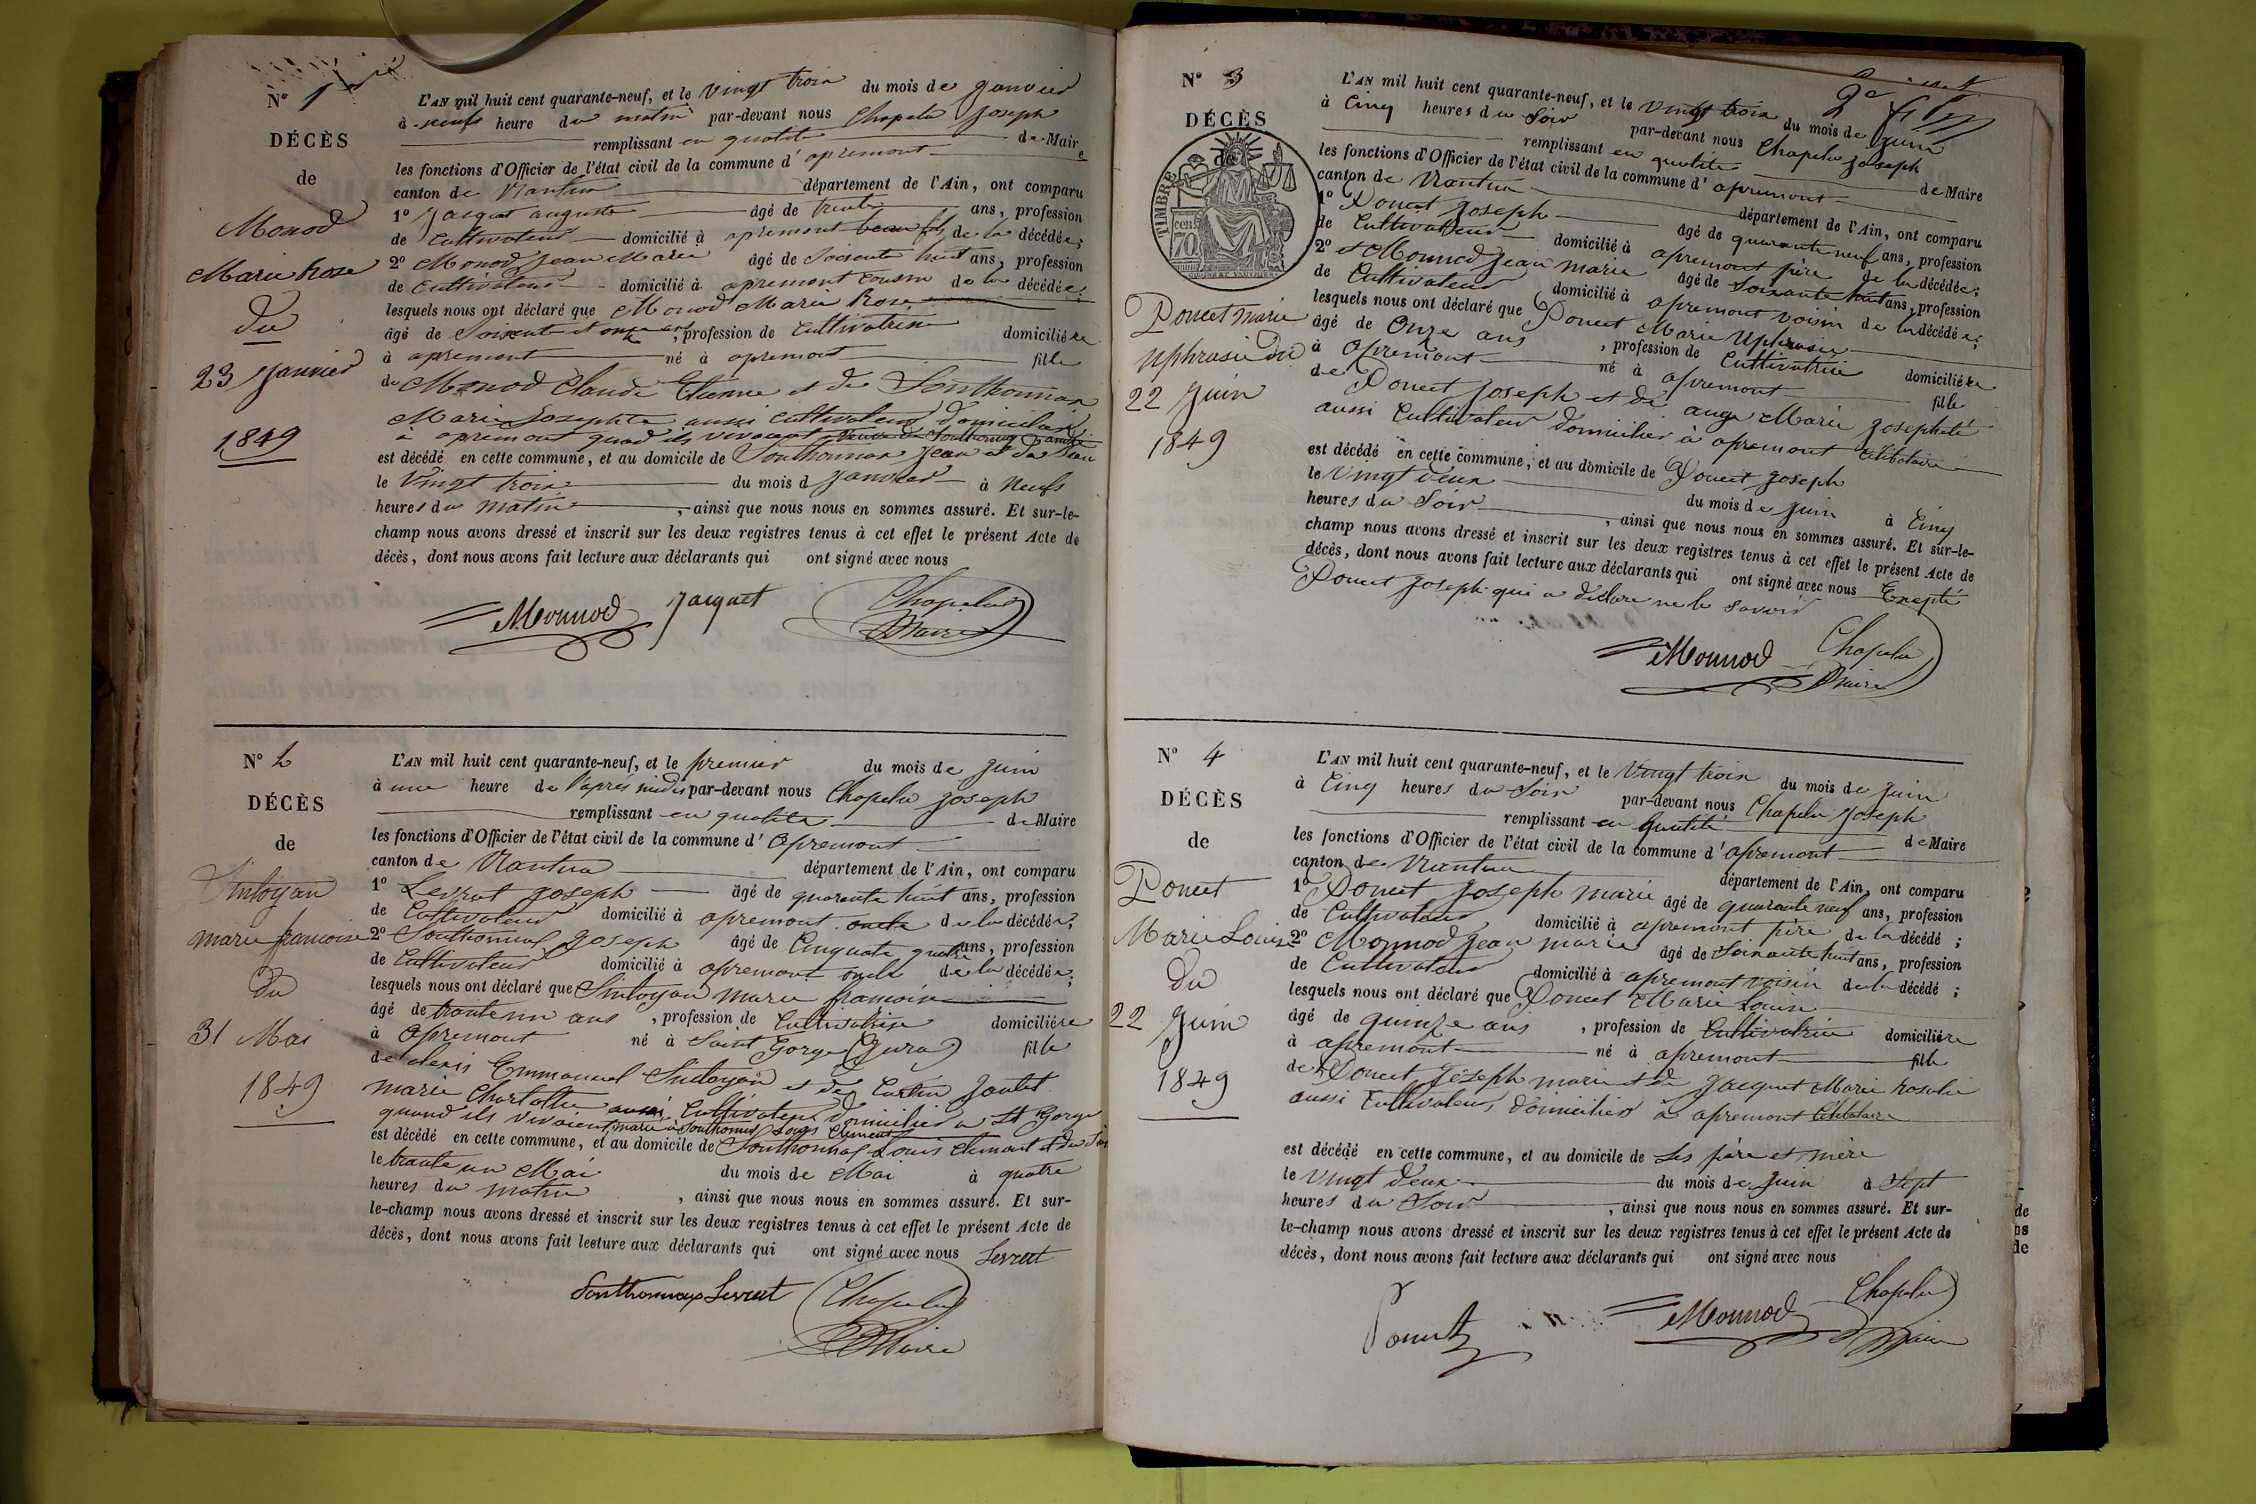 N° 1er
DÉCÈS
de
Monod
Marie Rose
du
23 Janvier
1849
L'AN mil huit cent quarante-neuf, et le vingt trois du mois de Janvier
à neufs heure du matin par-devant nous Chapelu Joseph
remplissant en qualité de Maire
les fonctions d'Officier de l'état civil de la commune d'apremont
canton de Nantua département de l'Ain, ont comparu
1° Jacquet auguste âgé de trente ans, profession
de Cultivateur domicilié à apremont beau fils de la décédée;
2° Monod Jean Marie âgé de Soixante huit ans, profession
de Cultivateur domicilié à apremont Cousin de la décédée;
lesquels nous ont déclaré que Monod Marie Rose
âgé de Soixente et onze ans, profession de Cultivatrise domiciliére
à apremont né à apremont fille
de Monod Claude Etienne et de Sonthonnax
Marie Josephte aussi cultivateur domiciliés
à apremont quand ils vivoient veuve de Sonthonnax
est décédé en cette commune, et au domicile de Sonthonnax Jean et du Sien
le Vingt trois du mois d Janvier à Neufs
heures du matin, ainsi que nous nous en sommes assuré. Et sur-le-
champ nous avons dressé et inscrit sur les deux registres tenus à cet effet le présent Acte de
décès, dont nous avons fait lecture aux déclarants qui ont signé avec nous
Monnod Jacquet Chapelu
Maire
N° 2
DÉCÈS
de
marie francoise
du
31 Mai
1849
L'AN mil huit cent quarante-neuf, et le premier du mois de Juin
à une heure de l'après midis par-devant nous Chapelu Joseph
remplissant en qualité de Maire
les fonctions d'Officier de l'état civil de la commune d'Apremont
canton de Nantua département de l'Ain, ont comparu
1° Levrat Joseph âgé de quarante huit ans, profession
de Cultivateur domicilié à apremont oncle de la décédée;
2° Sonthonnax Joseph âgé de Cinquate quatre ans, profession
de Cultivateur domicilié à apremont oncle de la décédée;
lesquels nous ont déclaré que marie framoise
âgé de trante un ans, profession de Cultivatrise domiciliére
à Apremont né à Saint Gorge (Jura) fille
de alexis Emmanuel et de Jantet
marie Charlotte aussi Cultivateur domicilié a St Gorge
quand ils vivoient marié à Sonthonnax Louis Clement
est décédé en cette commune, et au domicile de Sonthonnax Louis Clement et du Sien
le trante un Mai du mois de Mai à quatre
heures du matin, ainsi que nous nous en sommes assuré. Et sur-
le-champ nous avons dressé et inscrit sur les deux registres tenus à cet effet le présent Acte de
décès, dont nous avons fait lecture aux déclarants qui ont signé avec nous Levrat
Sonthonnax Levrat Chapelu
Maire
N° 3
DÉCÈS
de
TIMBRE
70
Poncet marie
Uphrasie du
22 Juin
1849
L'AN mil huit cent quarante-neuf, et le vingt trois du mois de Juin
à Cinq heures du Soir par-devant nous Chapelu Joseph
remplissant en qualité de Maire
les fonctions d'Officier de l'état civil de la commune d'apremont
canton de Nantua département de l'Ain, ont comparu
1° Poncet Joseph âgé de quarante neuf ans, profession
de Cultivateur domicilié à apremont père de la décédée;
2° et Monnod Jean marie âgé de Soixante huit ans, profession
de Cultivateur domicilié à apremont voisin de la décédée;
lesquels nous ont déclaré que Poncet Marie Uphrasie
âgé de Onze ans, profession de Cultivatrice domiciliére
à Apremont né à apremont fille
de Poncet Joseph et de Marie Josephete
aussi Cultivateur domicilier à apremont Célibataire
est décédé en cette commune, et au domicile de Poncet Joseph
le Vingt deux du mois de Juin à Cinq
heures du Soir, ainsi que nous nous en sommes assuré. Et sur-le-
champ nous avons dressé et inscrit sur les deux registres tenus à cet effet le présent Acte de
décès, dont nous avons fait lecture aux déclarants qui ont signé avec nous Excepté
Poncet Joseph qui a déclare ne le Savoir
Monnod Chapelu
Maire
N° 4
DÉCÈS
de
Poncet
Marie Louise
du
22 Juin
1849
L'AN mil huit cent quarante-neuf, et le Vingt trois du mois de Juin
à Cinq heures du Soir par-devant nous Chapelu Joseph
remplissant en qualité de Maire
les fonctions d'Officier de l'état civil de la commune d'apremont
canton de Nantua département de l'Ain, ont comparu
1° Poncet Joseph marie âgé de quarante neuf ans, profession
de Cultivateur domicilié à apremont père de la décédé;
2° Monnod Jean marie âgé de Soixante huit ans, profession
de Cultivateur domicilié à apremont voisin de la décédé;
lesquels nous ont déclaré que Poncet Marie Louise
âgé de quinze ans, profession de Cultivatrice domiciliére
à apremont né à apremont fille
de Poncet Joseph marie et de Jacquet Marie Rosalie
aussi Cultivateur, domicilier à apremont Célibataire
est décédé en cette commune, et au domicile de Ses père et mère
le vingt deux du mois de Juin à Sept
heures du Soir, ainsi que nous nous en sommes assuré. Et sur-
le-champ nous avons dressé et inscrit sur les deux registres tenus à cet effet le présent Acte de
décès, dont nous avons fait lecture aux déclarants qui ont signé avec nous
Poncet Monnod Chapelu
Maire